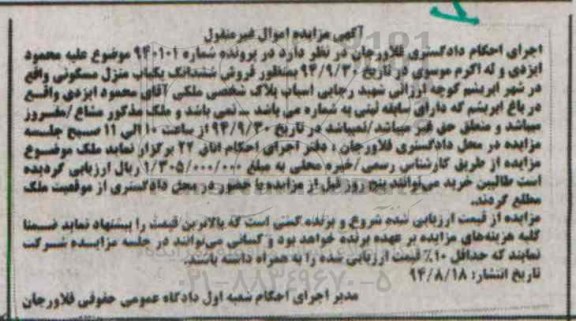 آگهی مزایده اموال غیرمنقول
اجرای احکام دادگستری فلاورجان در نظر دارد در پرونده شماره ۹۴۰۱۰۱ موضوع علیه محمود
ایزدی و له اکرم موسوی در تاریخ ۹۴/۹/۳۰ بمنظور فروش ششدانگ یکباب منزل مسکونی واقع
در شهر ابریشم کوچه ارزانی شهید رجایی اسباب پلاک شخصی ملکی آقای محمود ایزدی واقع
در باغ ابریشم که دارای سابقه ثبتی به شماره می باشد ــ نمی باشد و ملک مذکور مشاع /مفروز
میباشد و متعلق حق غیر میباشد/نمیباشد در تاریخ ۹۴/۹/۳۰ از ساعت ۱۰ الی ۱۱ صبح جلسه
مزایده در محل دادگستری فلاورجان ، دفتر اجرای احکام اتاق ۲۲ برگزار نماید ملک موضوع
مزایده از طریق کارشناس رسمی /خبره محلی به مبلغ ۱/۳۰۵/۰۰۰/۰۰۰ ریال ارزیابی گردیده
است طالبین خرید می‌توانند پنج روز قبل از مزایده با حضور در محل دادگستری از موقعیت ملک
مطلع گردند.
مزایده از قیمت ارزیابی شده شروع و برنده کسی است که بالاترین قیمت را پیشنهاد نماید ضمنا
کلیه هزینه‌های مزایده بر عهده برنده خواهد بود و کسانی می‌توانند در جلسه مزایده شرکت
نمایند که حداقل ۱۰٪ قیمت ارزیابی شده را به همراه داشته باشند.
تاریخ انتشار: ۹۴/۸/۱۸
۰۲۱-۸۸۳۴۹۶۷۰-۵
مدیر اجرای احکام شعبه اول دادگاه عمومی حقوقی فلاورجان